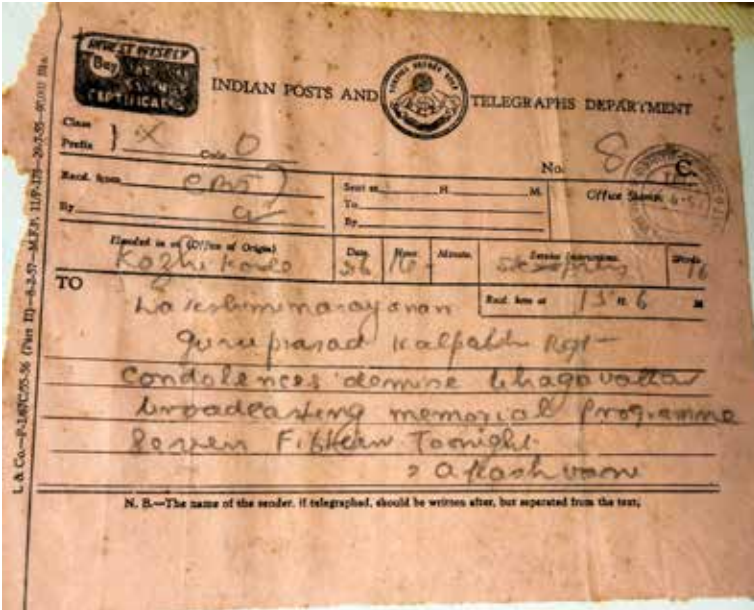 INVEST WISELY
Buy
SAVINGS
CERTIFICATES
INDIAN POSTS AND TELEGRAPHS DEPARTMENT
Class
Prefix } X Code O
No. 8 C.
Recd. from
By
Sent at H. M.
To
By
Office Stamp
Handed in at (Office of Origin)
Date Hour Minute Service Instructions Words
Kozhikode 16
TO
Lakshminarayanan
Recd. here at H. M
Guruprasad Kalpathi
Condolences demise bhagavathar
broadcasting memorial programme
Seven Fifteen Tonight
Akashvani
N. B.—The name of the sender, if telegraphed, should be written after, but separated from the text.